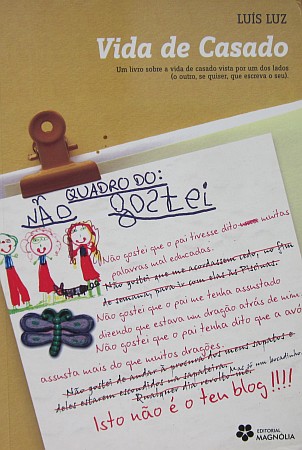 LUÍS LUZ
Vida de Casado
Um livro sobre a vida de casado vista por um dos lados
(o outro, se quiser, que escreva o seu).
QUADRO DO:
NÃO gostei
Não gostei que o pai tivesse dito muitas
palavras mal educadas.
Não gostei que me acordassem cedo, no fim
de semana, para ir com elas às Piscinas.
Não gostei que o pai me tenha assustado
dizendo que estava um dragão atrás de mim.
Não gostei que o pai tenha dito que a avó
assusta mais do que muitos dragões.
Não gostei de andar à procura dos meus sapatos e
deles estarem escondidos na sapateira. Mas só um bocadinho.
Qualquer dia revolto-me.
Isto não é o teu blog!!!!
EDITORIAL
MAGNÓLIA